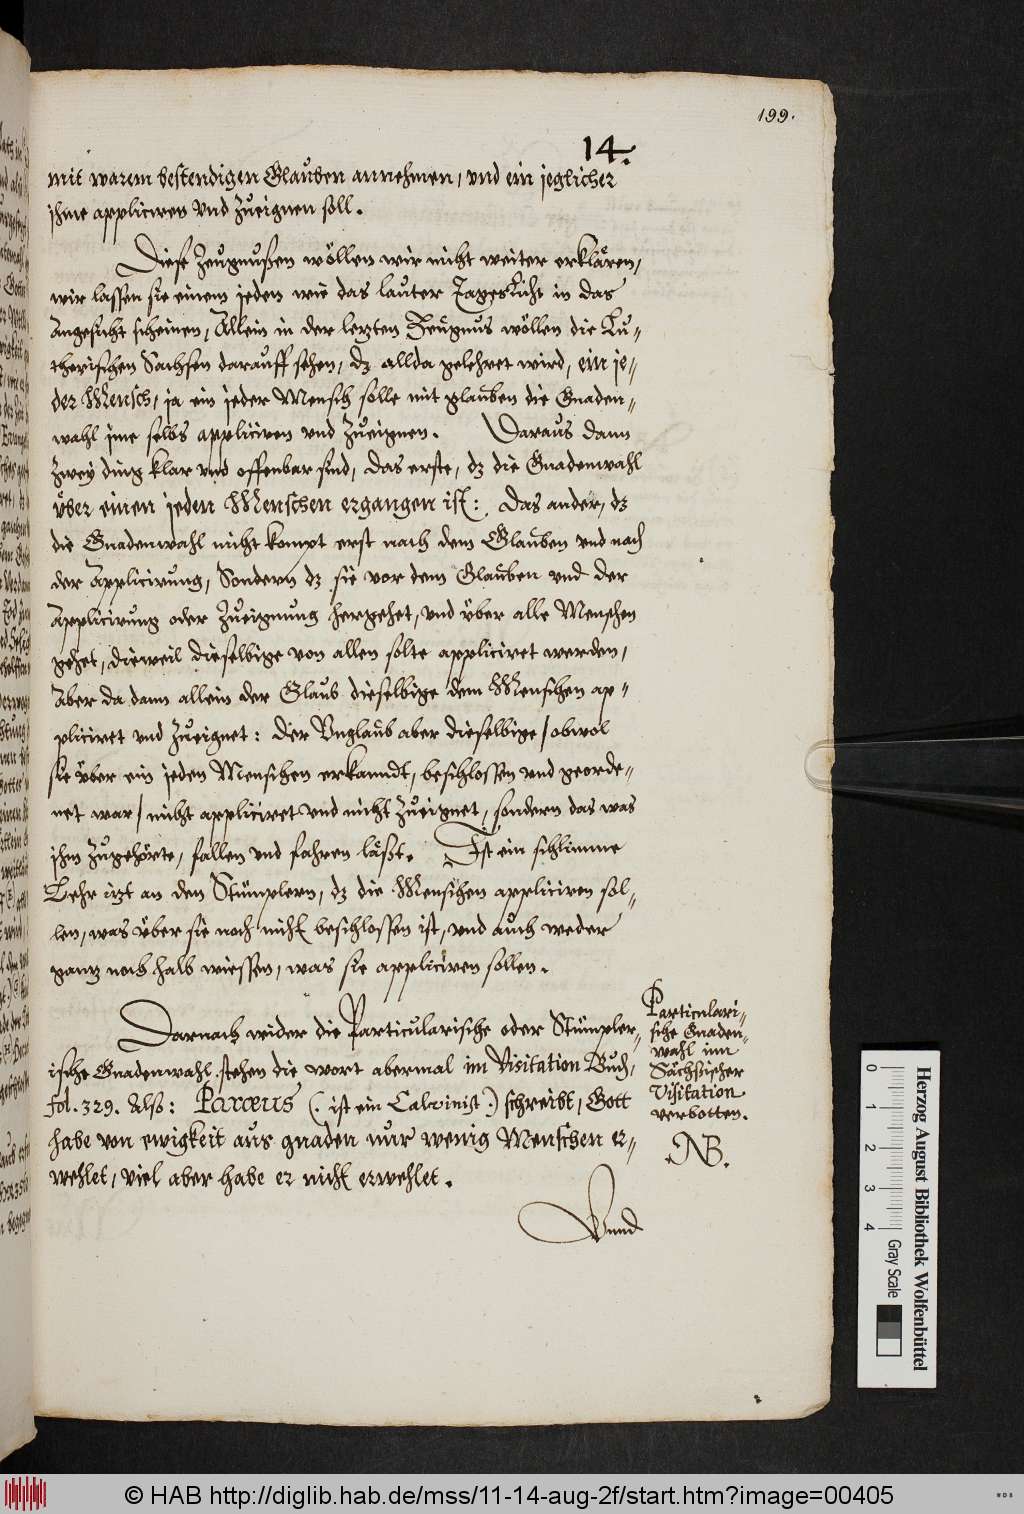 199.
14.
mit warem bestendigen Glauben annehmen, vnd ein jeglicher
ihme appliciren vnd zueignen soll.
Diese Zeugnußen wöllen wir nicht weiter erklären,
wir lassen sie einem jeden wie das lauter Tages Licht in das
Angesicht scheinen, Allein in der letzten Zeugnus wöllen die Lu-
therischen Sachsen darauff sehen, dz allda gelehret wird, ein je-
der Mensch, ja ein jeder Mensch solle mit glauben die Gnaden-
wahl jme selbs appliciren vnd zueignen. Daraus dann
zwey ding klar vnd offenbar sind, das erste, dz die Gnadenwahl
über einen jeden Menschen ergangen ist: Das ander, dz
die Gnadenwahl nicht kompt erst nach dem Glauben vnd nach
der Applicirung, Sondern dz sie vor dem Glauben vnd der
Applicirung oder Zueignung hergehet, vnd über alle Menschen
gehet, dieweil dieselbige von allen solte appliciret werden,
Aber da dann allein der Glaub dieselbige dem Menschen ap-
pliciret vnd zueignet: Der Vnglaub aber dieselbige / obwol
sie über ein jeden Menschen erkanndt, beschlossen vnd georde-
net war / nicht appliciret vnd nicht zueignet, sondern das was
ihm zugehörte, fallen vnd fahren läßt. Ist ein schlimme
Lehr itzt an den Stümplern, dz die Menschen appliciren sol-
len, was über sie noch nicht beschlossen ist, vnd auch weder
gantz noch halb wiessen, was sie appliciren sollen.
Darnach wider die Particularische oder Stümpler-
ische Gnadenwahl stehen die wort abermal im Visitation Buch,
fol. 329. Also: Paræus (. ist ein Calvinist .) schreibt, Gott
habe von ewigkeit aus gnaden nur wenig Menschen er-
wehlet, viel aber habe er nicht erwehlet.
Vnnd
Particulari-
sche Gnaden-
wahl inn
Sächsischer
Visitation
verbotten.
NB.
0 1 2 3 4
Gray Scale
Herzog August Bibliothek Wolfenbüttel
© HAB http://diglib.hab.de/mss/11-14-aug-2f/start.htm?image=00405